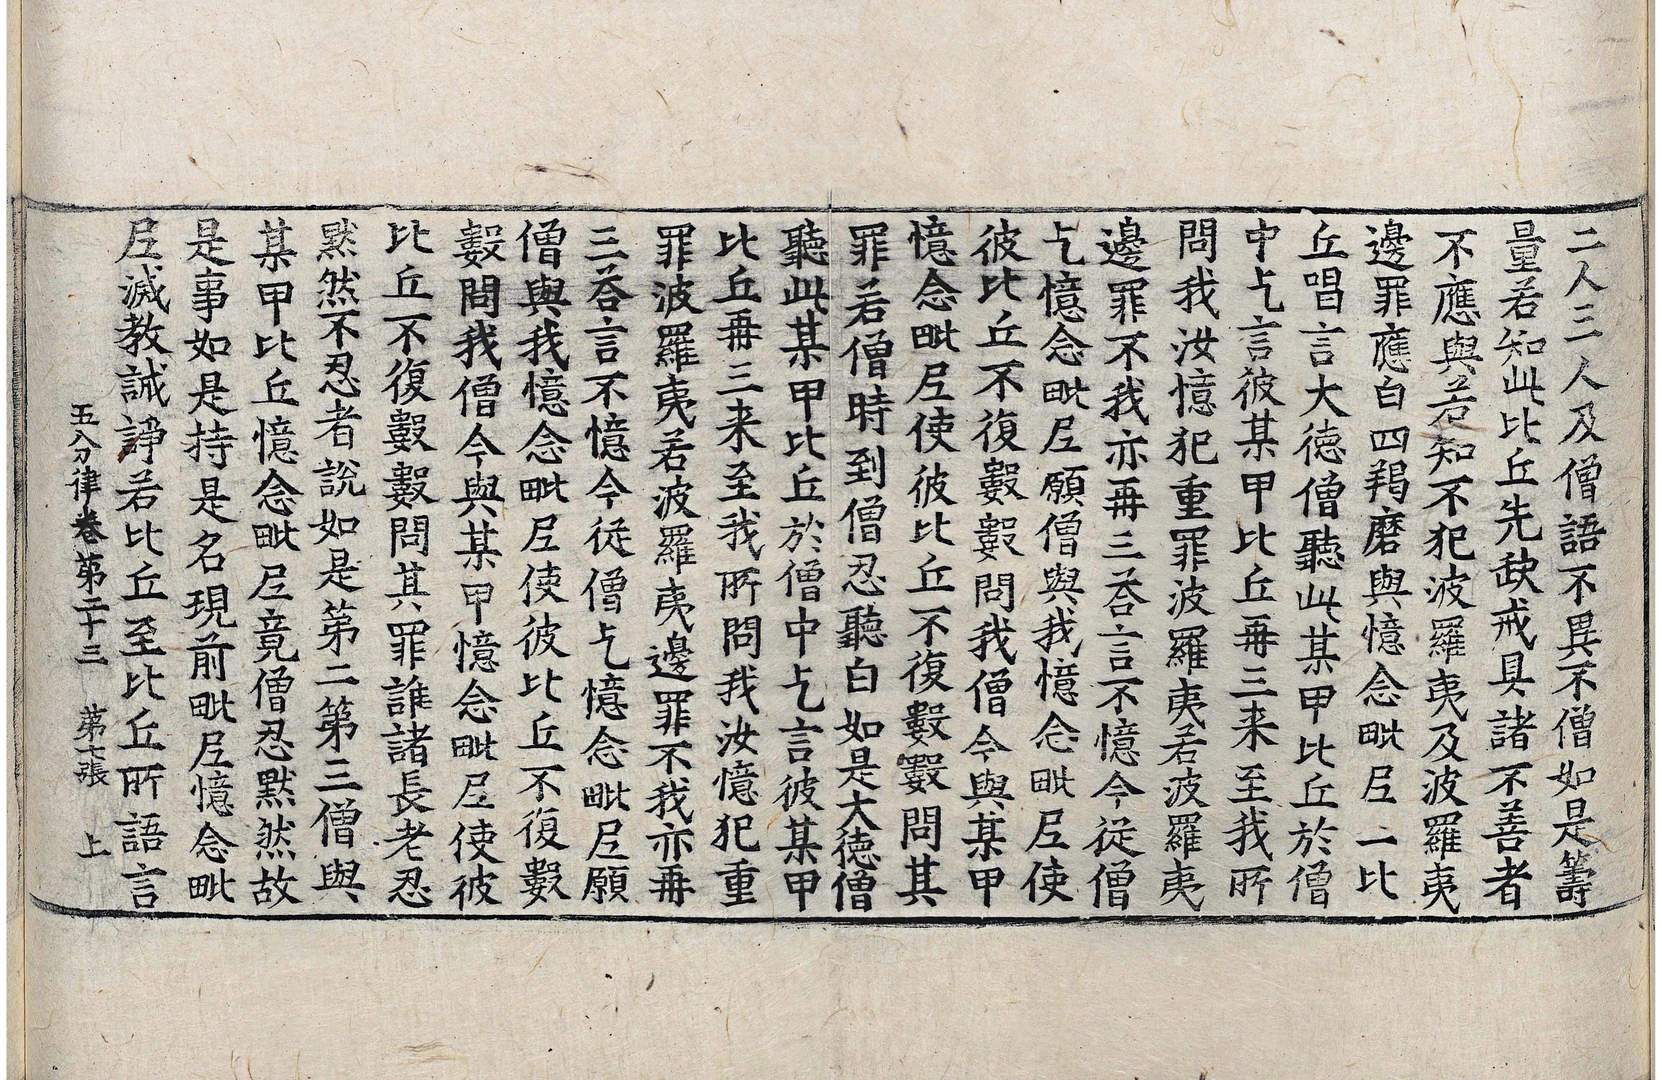 二人三人及僧語不異不僧如是籌
量若知此比丘先缺戒具諸不善者
不應與若知不犯波羅夷及波羅夷
邊罪應白四羯磨與憶念毗尼一比
丘唱言大德僧聽此某甲比丘於僧
中乞言彼某甲比丘再三来至我所
問我汝憶犯重罪波羅夷若波羅夷
邊罪不我亦再三荅言不憶今從僧
乞憶念毗尼願僧與我憶念毗尼使
彼比丘不復數數問我僧今與某甲
憶念毗尼使彼比丘不復數數問其
罪若僧時到僧忍聽白如是大德僧
聽此某甲比丘於僧中乞言彼某甲
比丘再三来至我所問我汝憶犯重
罪波羅夷若波羅夷邊罪不我亦再
三荅言不憶今從僧乞憶念毗尼願
僧與我憶念毗尼使彼比丘不復數
數問我僧今與某甲憶念毗尼使彼
比丘不復數數問其罪誰諸長老忍
黙然不忍者說如是第二第三僧與
某甲比丘憶念毗尼竟僧忍黙然故
是事如是持是名現前毗尼憶念毗
尼滅教誡諍若比丘至比丘所語言
五分律卷第二十三 第七張 上